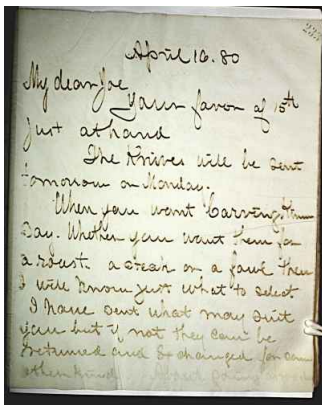 April 16. 80
My dear Joe
Your favor of 15th
just at hand
The Knives will be sent
tomorrow or Monday.
When you want Carving them
Say. Whether you want them for
a roast. a steak or a fowl then
I will know just what to select
I have sent what may suit
you but if not they can be
returned and Exchanged for some
other Kind